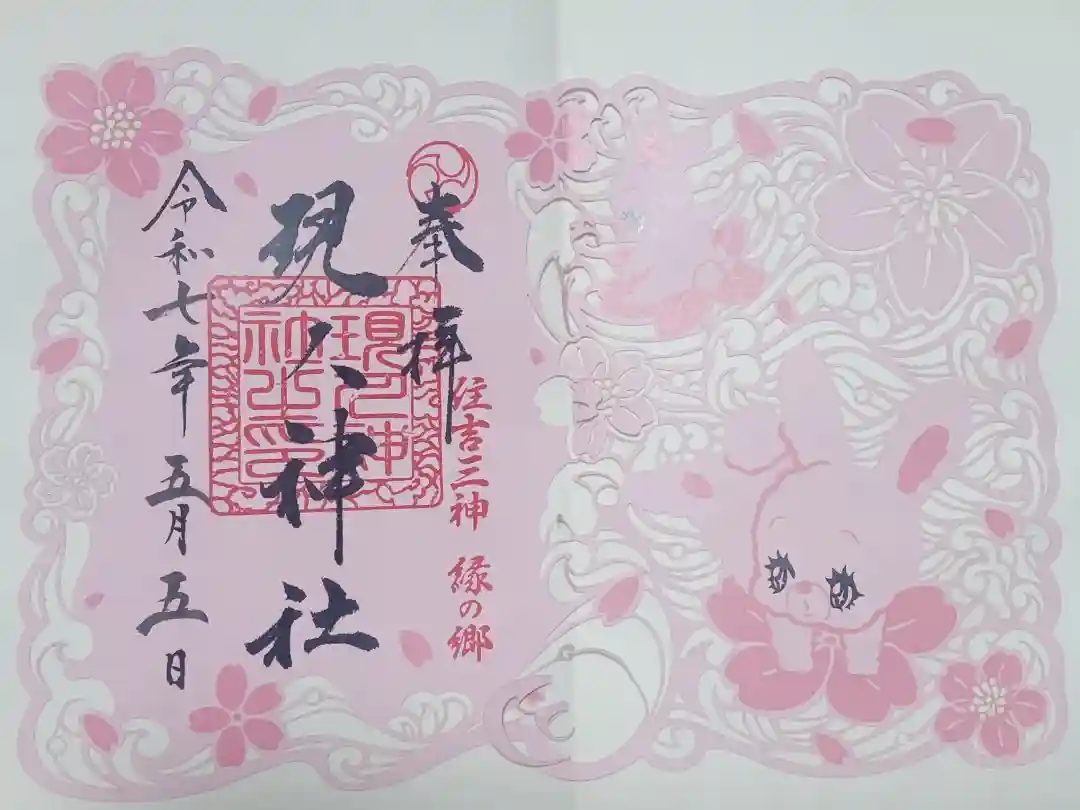 奉拝
住吉三神 縁の郷
現人神社
現人神社之印
令和七年 五月五日